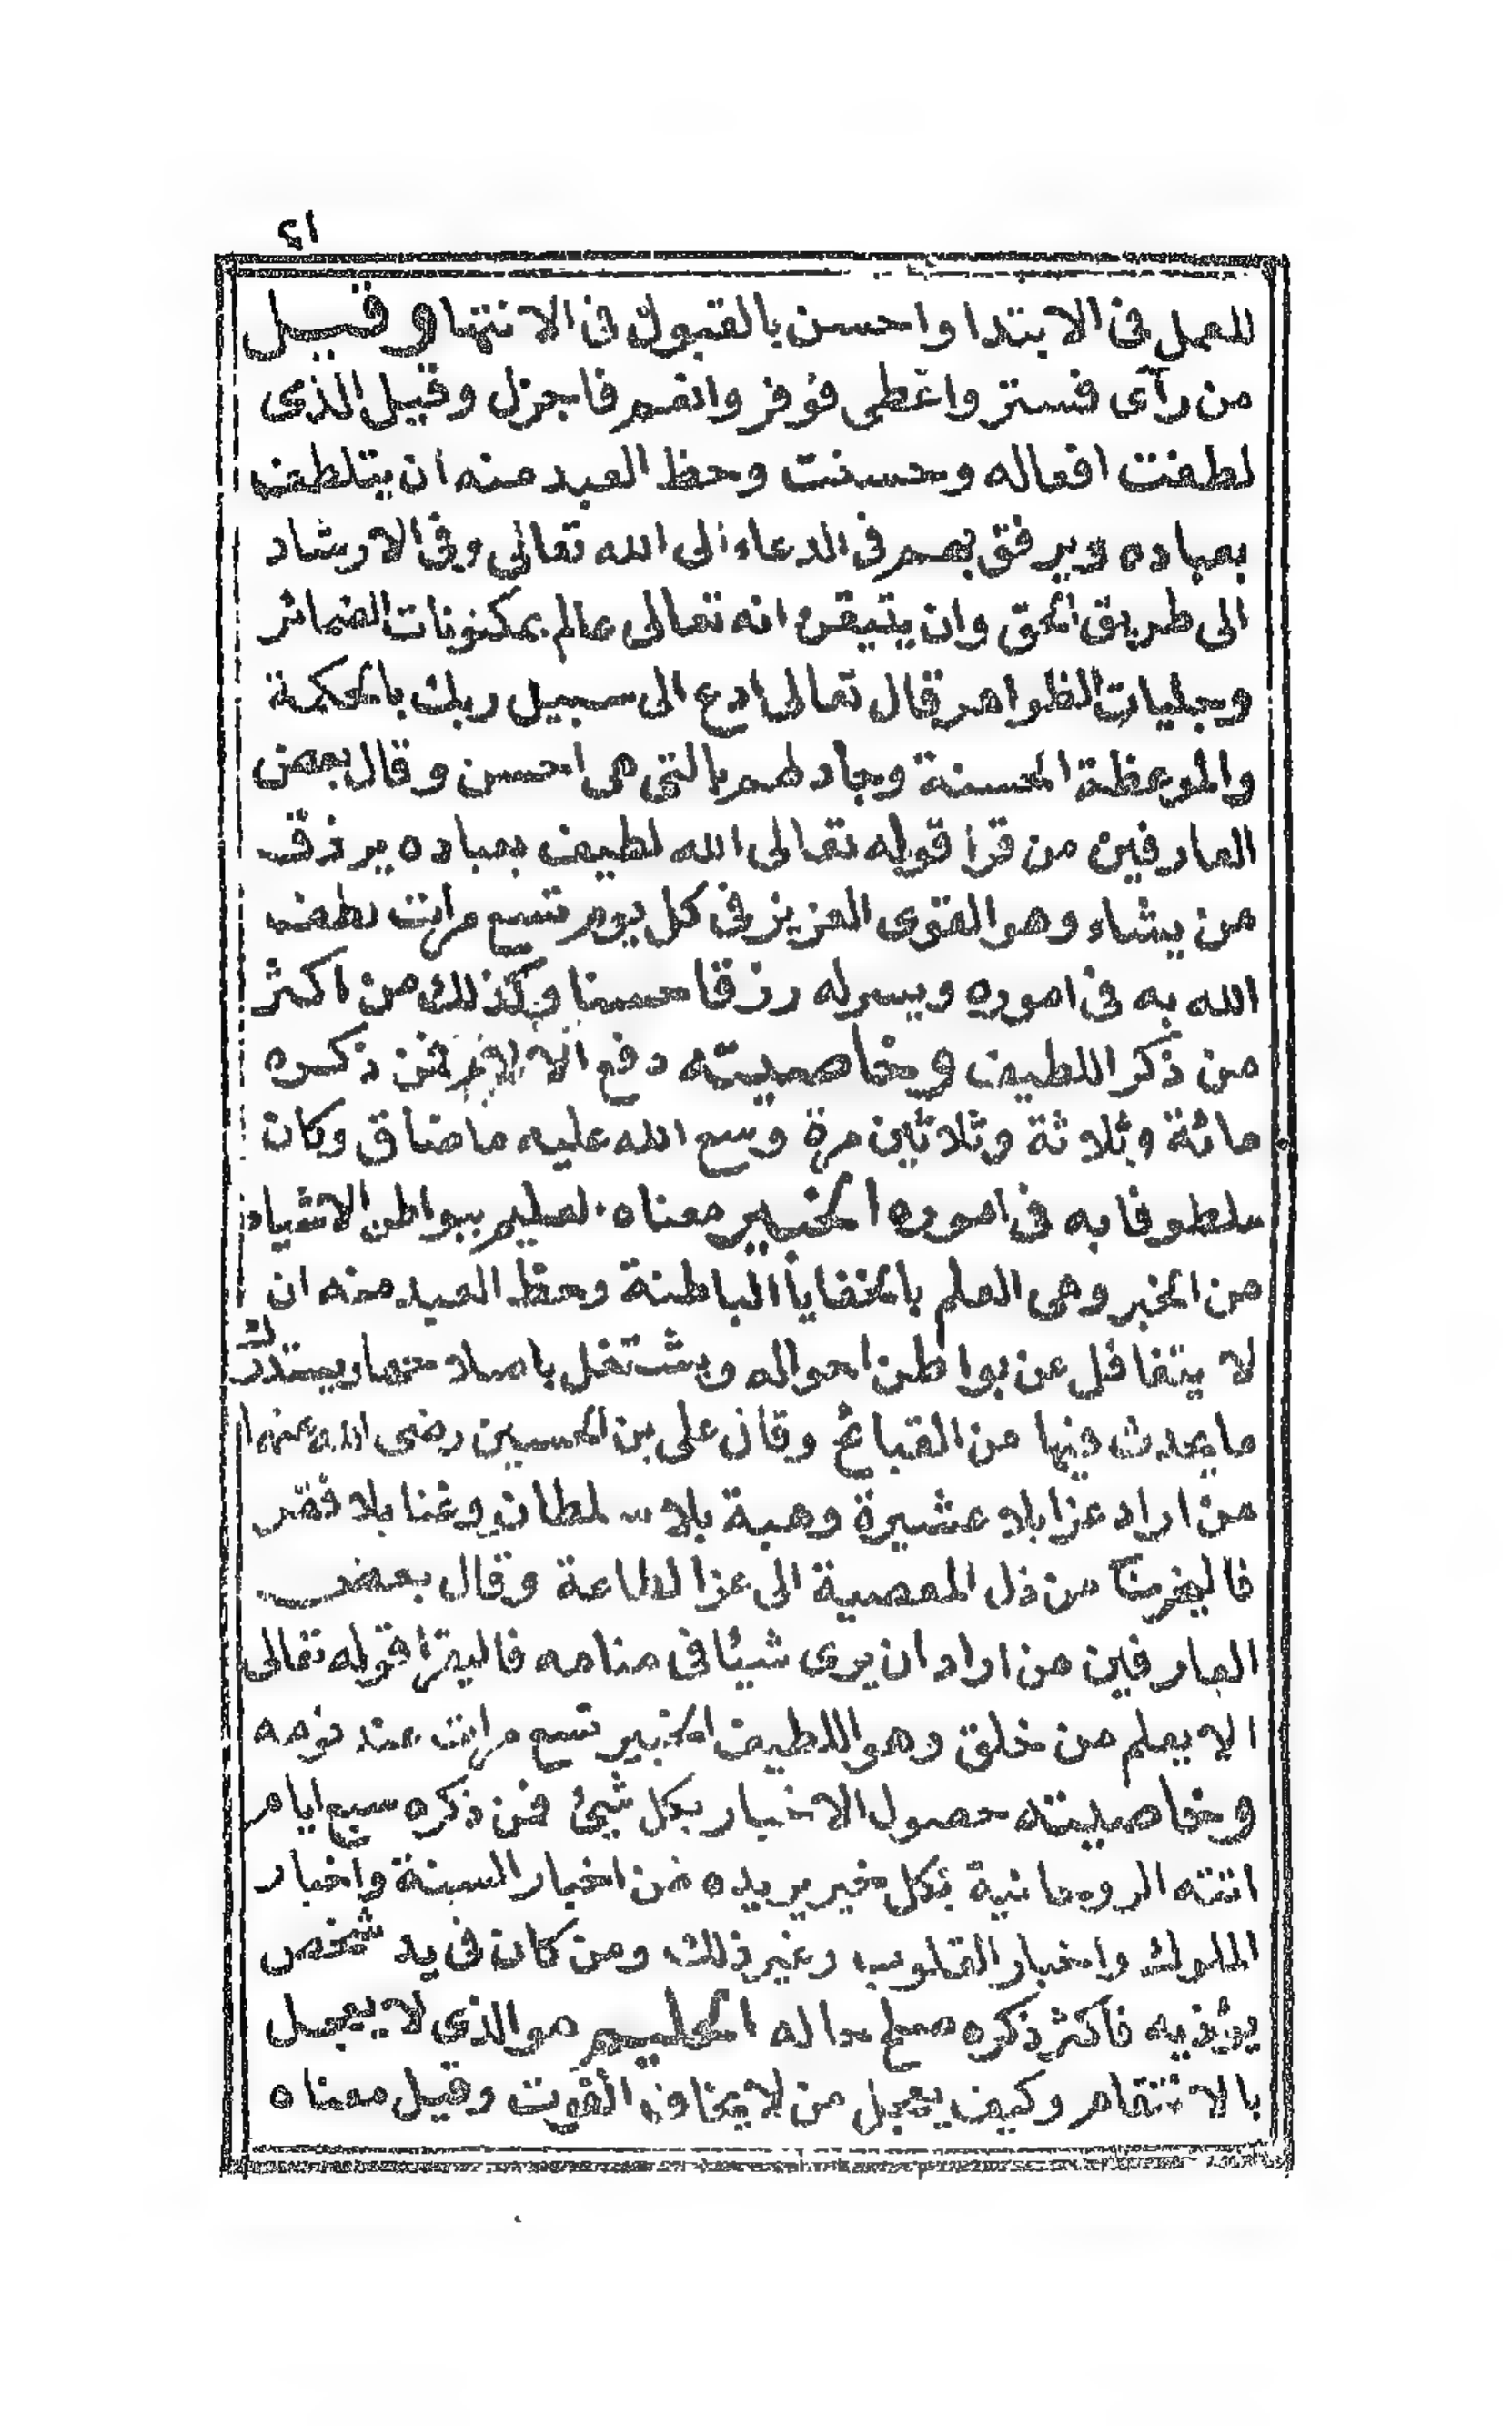 ٢١
للعمل فى الابتدا واحسن بالقبول فى الانتها وقيل
من رآى فستر واعطى فوفر وانعم فاجزل وقيل الذى
لطفت افعاله وحسنت وحظ العبد منه ان يتلطف
بعباده ويرفق بهم فى الدعاء الى الله تعالى وفى الارشاد
الى طريق الحق وان يتيقن انه تعالى عالم بمكنونات الضمائر
وجليات الظواهر قال تعالى ادع الى سبيل ربك بالحكمة
والموعظة الحسنة وجادلهم بالتى هى احسن وقال بعض
العارفين من قرا قوله تعالى الله لطيف بعباده يرزق
من يشاء وهو القوى العزيز فى كل يوم تسع مرات لطف
الله به فى اموره ويسر له رزقا حسنا وكذلك من اكثر
من ذكر اللطيف وخاصيته دفع الآلام فمن ذكره
مائة وثلاثة وثلاثين مرة وسع الله عليه ما ضاق وكان
ملطوفا به فى اموره الخبير معناه العليم ببواطن الاشياء
من الخبر وهى العلم بالخفايا الباطنة وحظ العبد منه ان
لا يتغافل عن بواطن احواله ويشتغل باصلاحها ويستدرك
ما يحدث فيها من القبائح وقال على بن الحسين رضى الله عنهما
من اراد عزا بلا عشيرة وهيبة بلا سلطان وغنا بلا فقر
فاليخرج من ذل المعصية الى عز الطاعة وقال بعض
العارفين من اراد ان يرى شيئا فى منامه فاليقرا قوله تعالى
الا يعلم من خلق وهو اللطيف الخبير تسع مرات عند نومه
وخاصيته حصول الاخبار بكل شيئ فمن ذكره سبع ايام
اتته الروحانية بكل خبر يريده من اخبار السنة واخبار
الملوك واخبار القلوب وغير ذلك ومن كان فى يد شخص
يؤذيه فاكثر ذكره صلح حاله الحليم هو الذى لا يعجل
بالانتقام وكيف يعجل من لا يخاف الفوت وقيل معناه